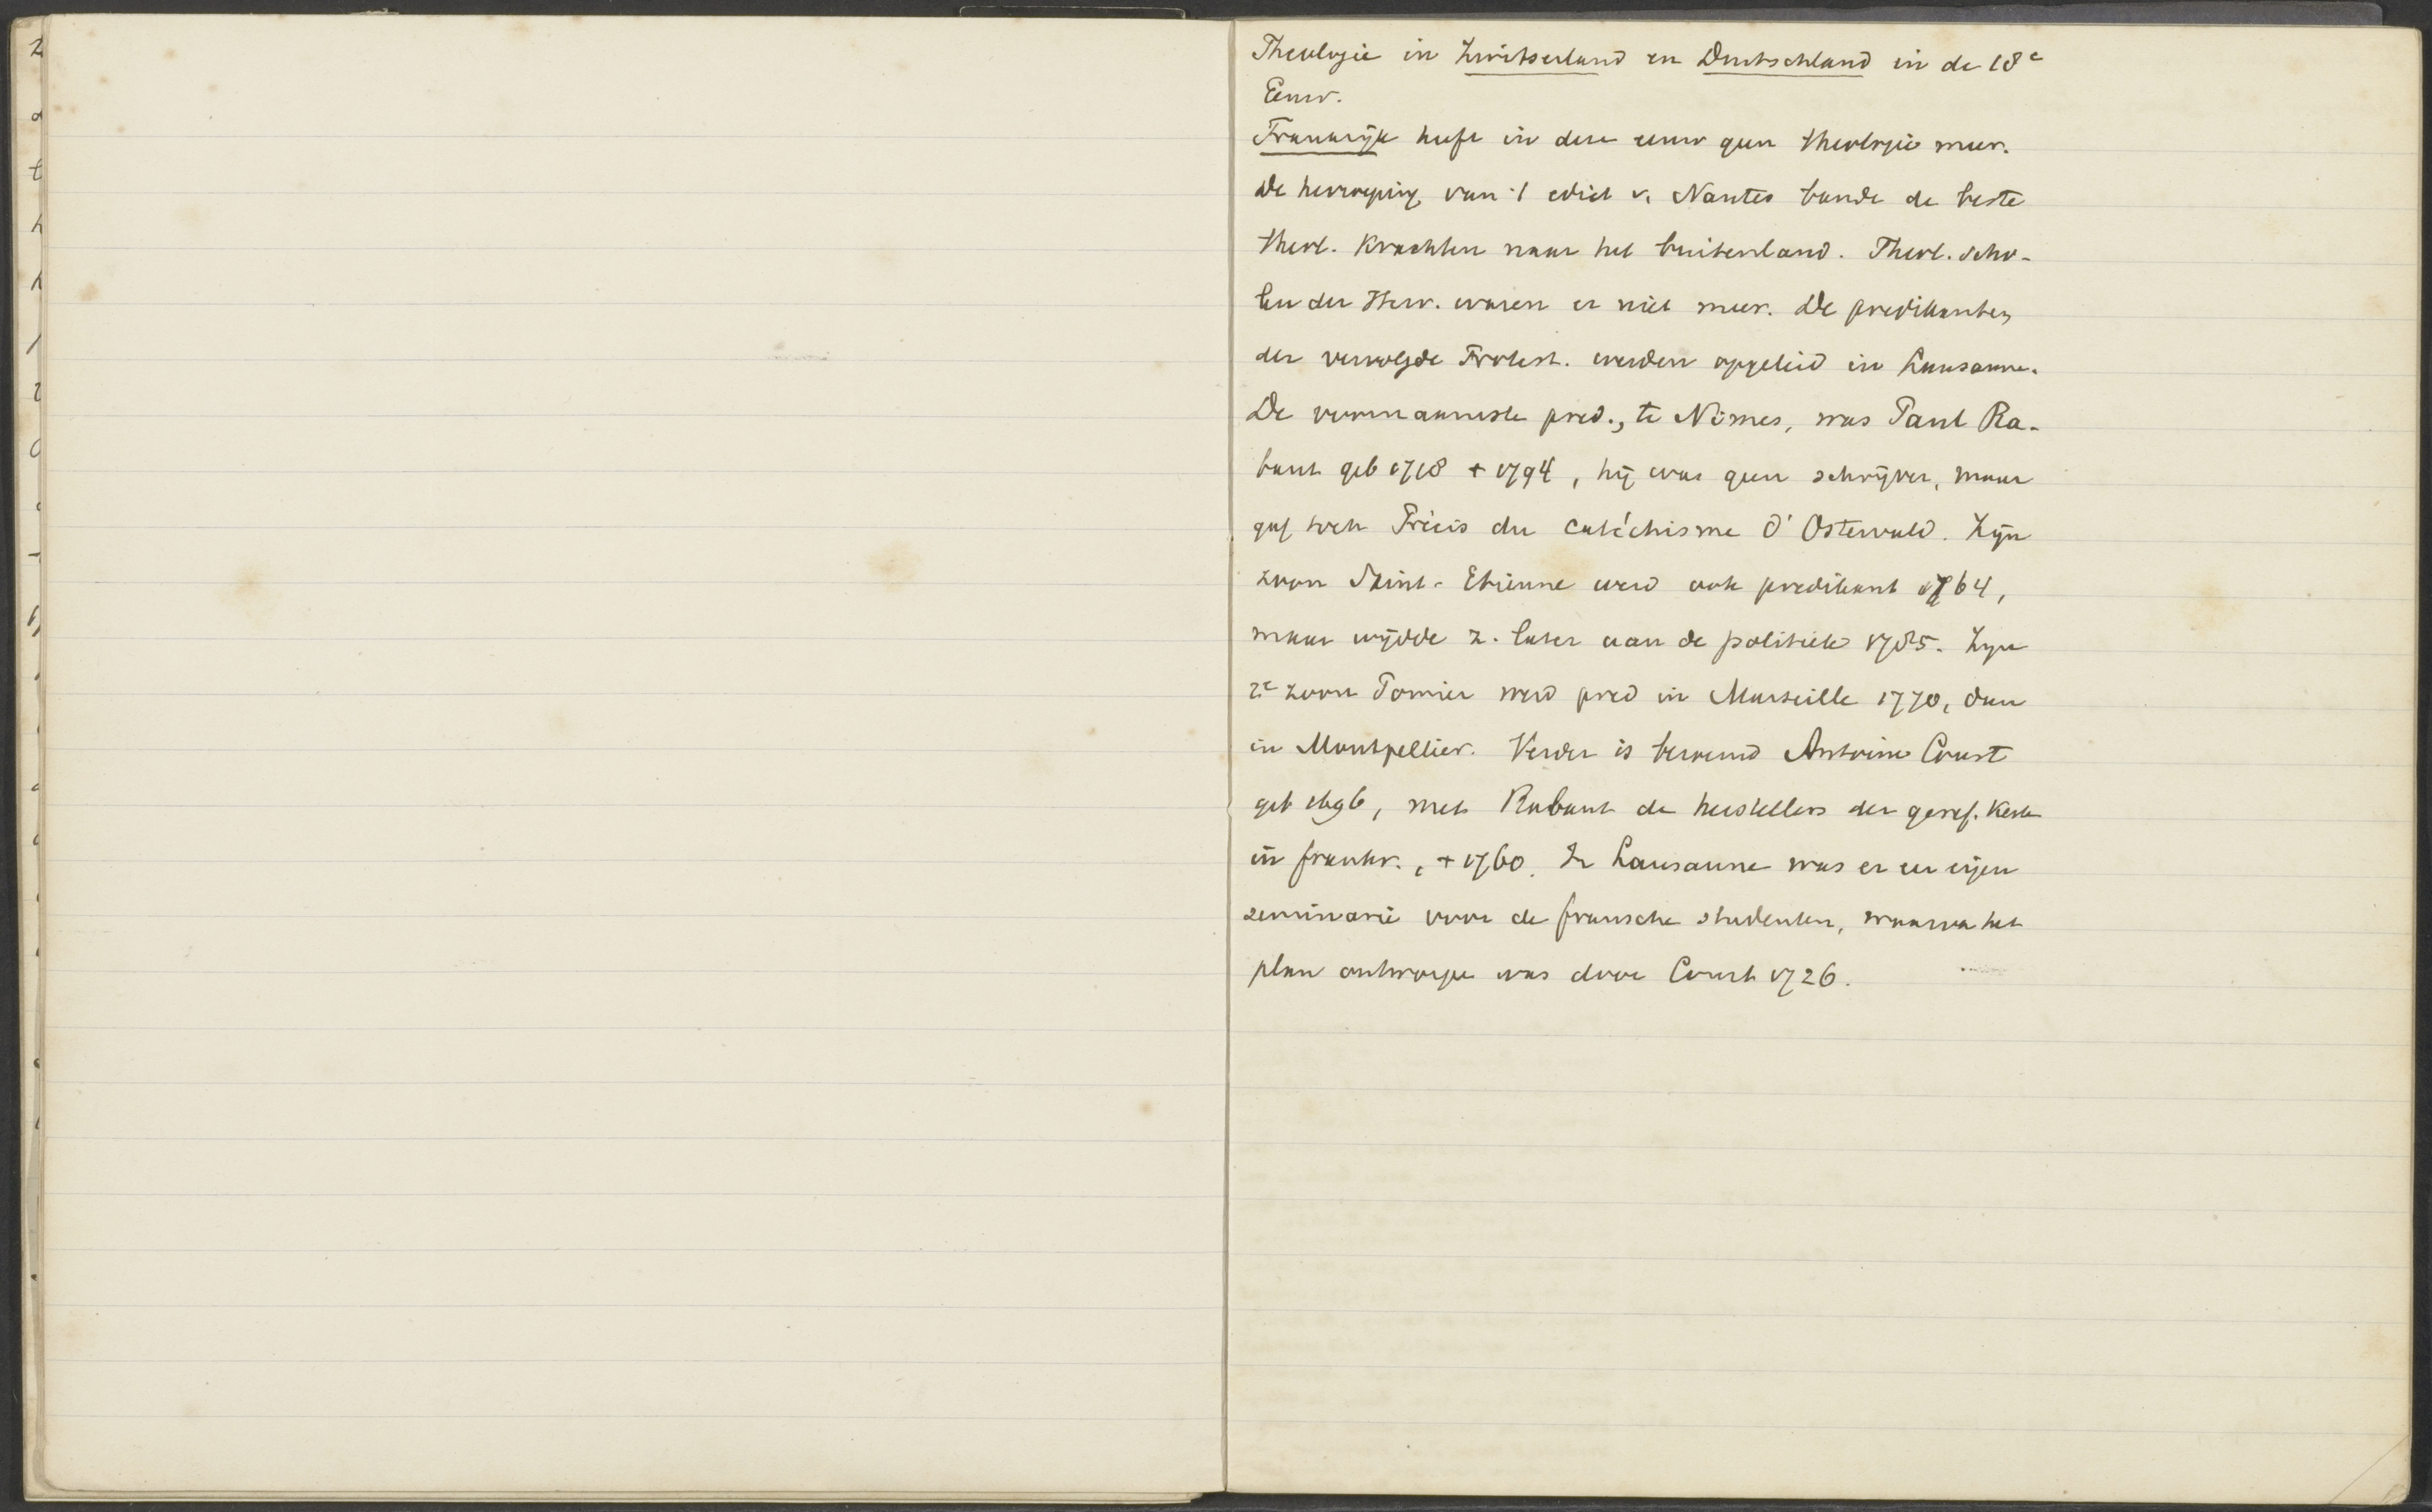 Theologie in Zwitserland en Duitschland in de 18e
Eeuw.
Frankrijk heeft in deze eeuw geen theologie meer.
De herroeping van 't edict v. Nantes bande de beste
theol. krachten naar het buitenland. Theol. scho-
len der Herv. waren er niet meer. De predikanten
der vervolgde Protest. werden opgeleid in Lausanne.
De voornaamste pred., te Nimes, was Paul Ra-
baut geb 1718 + 1794, hij was geen schrijver, maar
gaf toch Précis du catéchisme d'Ostervald. Zijn
zoon Saint-Etienne werd ook predikant 1764,
maar wijdde z. later aan de politiek 1785. Zijn
2e zoon Pomier werd pred in Marseille 1770, dan
in Montpellier. Verder is beroemd Antoine Court
geb 1696, met Rabaut de herstellers der geref. kerk
in frankr., + 1760. In Lausanne was er een eigen
seminarie voor de fransche studenten, waarva het
plan ontworpe was door Court 1726.